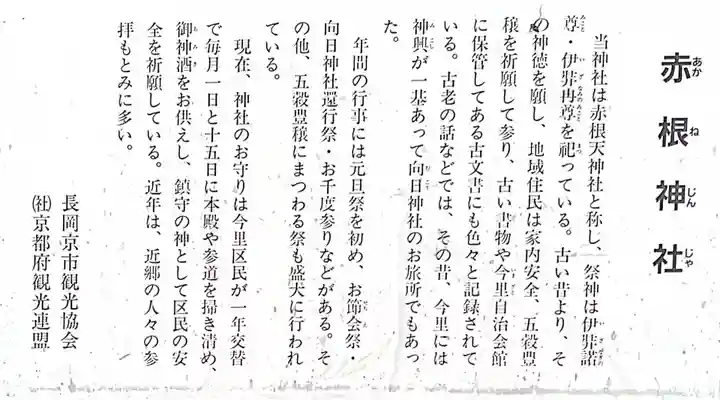 赤根神社
当神社は赤根天神社と称し、祭神は伊弉諾
尊・伊弉冉尊を祀っている。古い昔より、そ
の神徳を願し、地域住民は家内安全、五穀豊
穣を祈願して参り、古い書物や今里自治会館
に保管してある古文書にも色々と記録されて
いる。古老の話などでは、その昔、今里には
神輿が一基あって向日神社のお旅所でもあっ
た。
年間の行事には元旦祭を初め、お節会祭・
向日神社還行祭・お千度参りなどがある。そ
の他、五穀豊穣にまつわる祭も盛大に行われ
ている。
現在、神社のお守りは今里区民が一年交替
で毎月一日と十五日に本殿や参道を掃き清め、
御神酒をお供えし、鎮守の神として区民の安
全を祈願している。近年は、近郷の人々の参
拝もとみに多い。
長岡京市観光協会
㈳京都府観光連盟